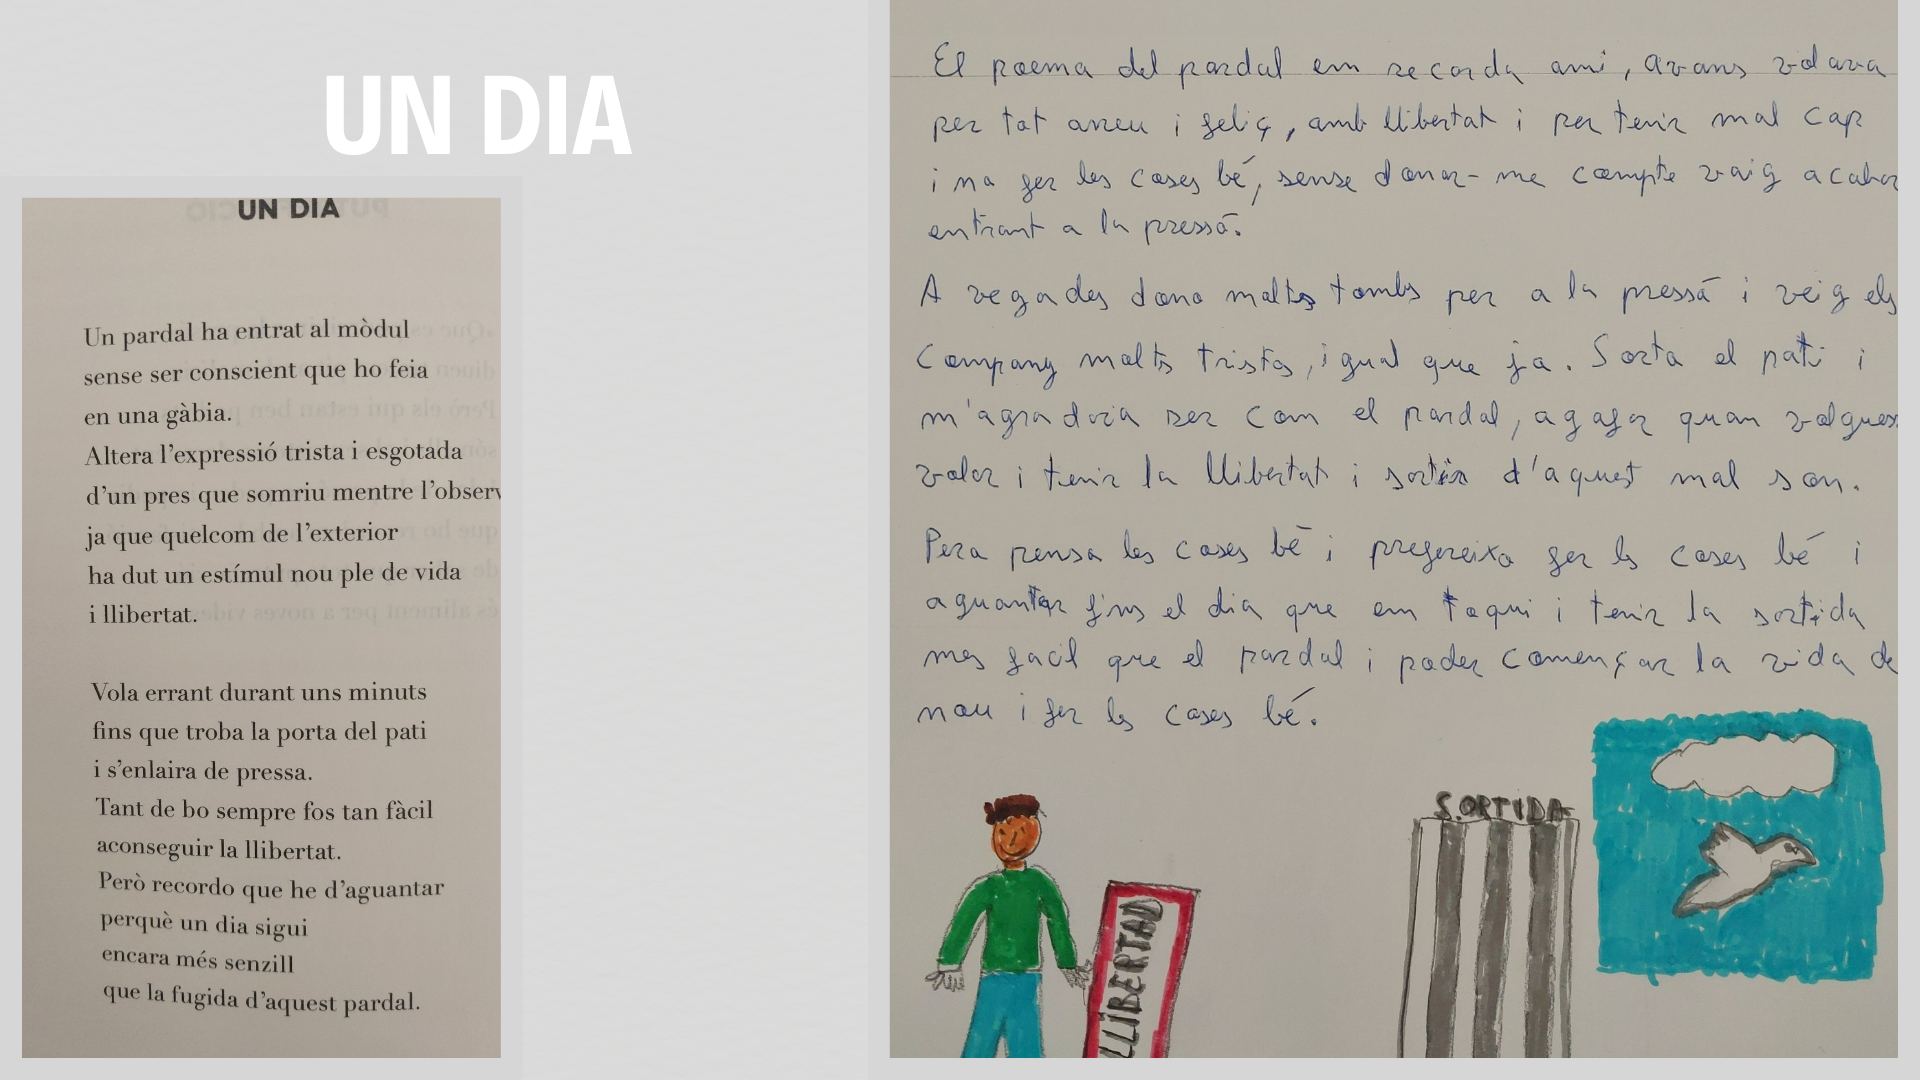 UN DIA
UN DIA
Un pardal ha entrat al mòdul
sense ser conscient que ho feia
en una gàbia.
Altera l'expressió trista i esgotada
d'un pres que somriu mentre l'observ
ja que quelcom de l'exterior
ha dut un estímul nou ple de vida
i llibertat.
Vola errant durant uns minuts
fins que troba la porta del pati
i s'enlaira de pressa.
Tant de bo sempre fos tan fàcil
aconseguir la llibertat.
Però recordo que he d'aguantar
perquè un dia sigui
encara més senzill
que la fugida d'aquest pardal.
El poema del pardal em recorda ami, avans volava
per tot areu i feliç, amb llibertat i per tenir mal cap
i no fer les coses bé, sense donar-me compte vaig acabar
entrant a la pressó.
A vegades dono molts tombs per a la pressó i veig els
Company molts tristos, igual que jo. Sorto el pati i
m'agradoria ser com el pardal, agafar quan volgues
volar i tenir la llibertat i sortir d'aquest mal son.
Pero penso les coses bé i prefereixo fer les coses bé i
aguantar fins el dia que em toqui i tenir la sortida
mes facil que el pardal i poder començar la vida de
nou i fer les coses bé.
SORTIDA
LLIBERTAD